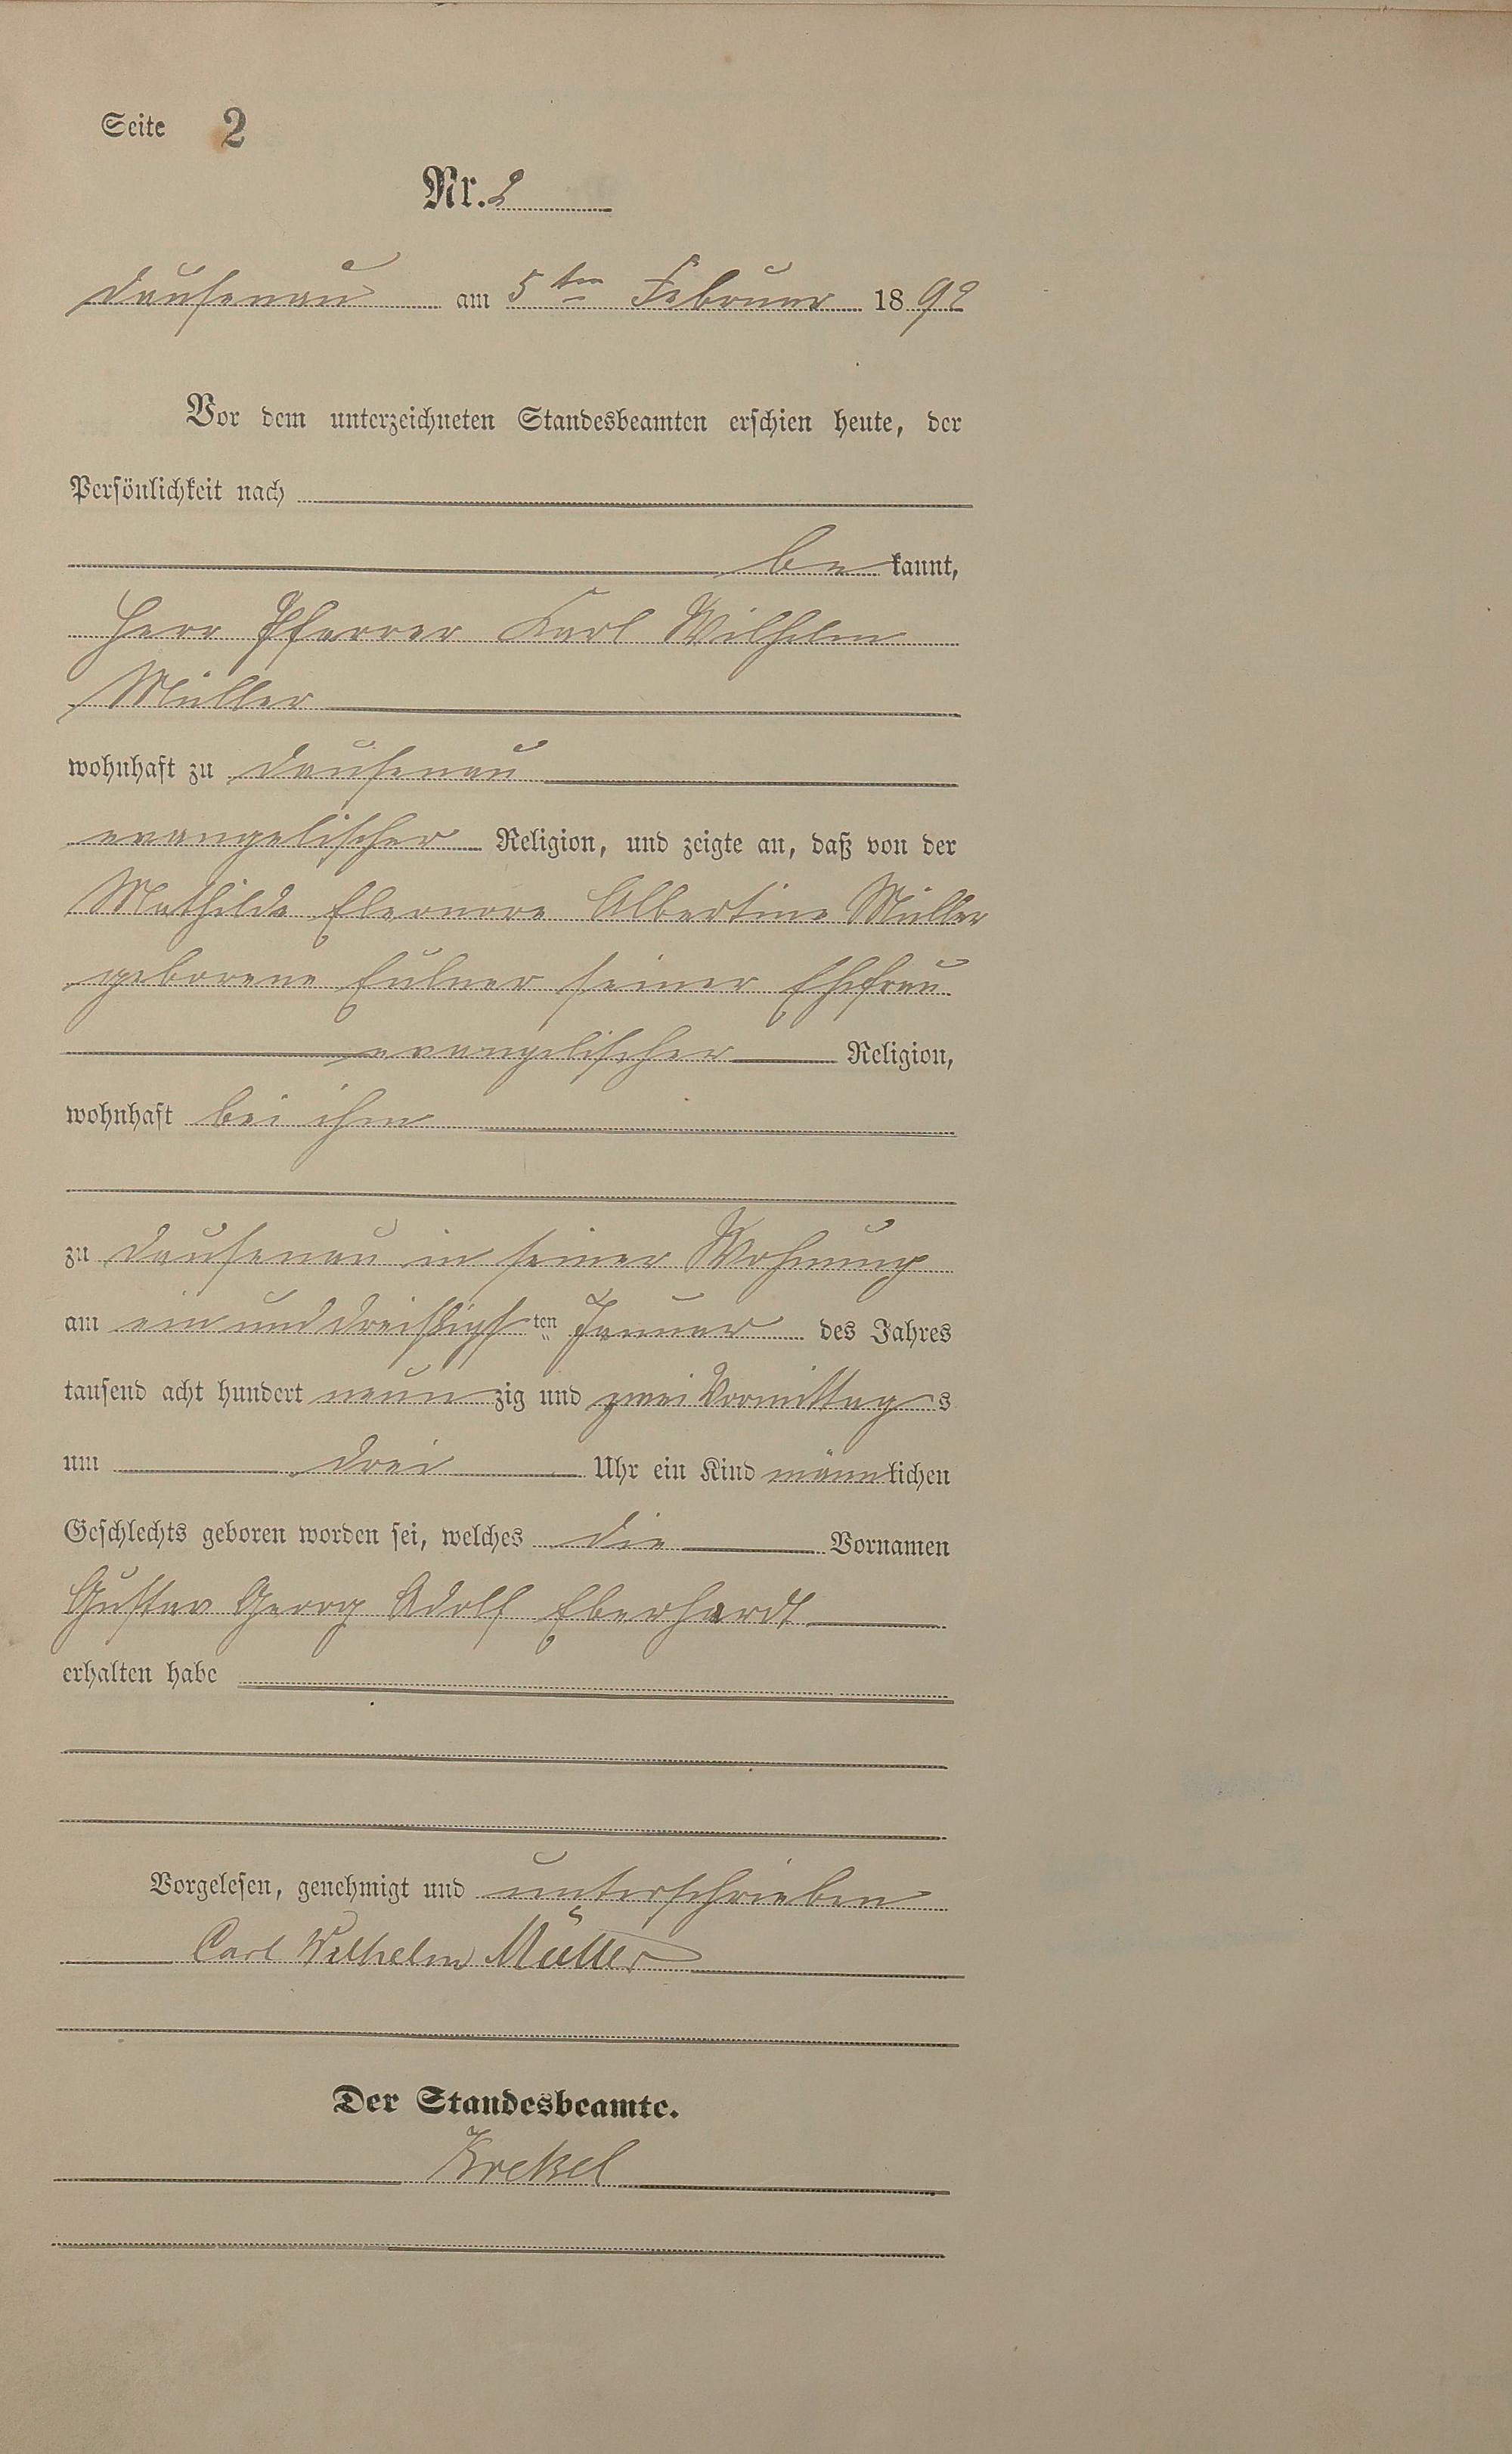 Seite 2
Nr. 2
Dausenau am 5ten Februar 1892
Vor dem unterzeichneten Standesbeamten erschien heute, der
Persönlichkeit nach
be kannt,
Herr Pfarrer Karl Wilhelm
Müller
wohnhaft zu Dausenau
evangelischer Religion, und zeigte an, daß von der
Mathilde Eleonore Albertine Müller
geborene Eulner seiner Ehefrau
evangelischer Religion,
wohnhaft bei ihm
zu Dausenau in seiner Wohnung
am ein und dreißigsten Januar des Jahres
tausend acht hundert neunzig und zwei Vormittags
um drei Uhr ein Kind männlichen
Geschlechts geboren worden sei, welches die Vornamen
Gustav Georg Adolf Eberhardt
erhalten habe
Vorgelesen, genehmigt und unterschrieben
Carl Wilhelm Müller
Der Standesbeamte.
Krekel